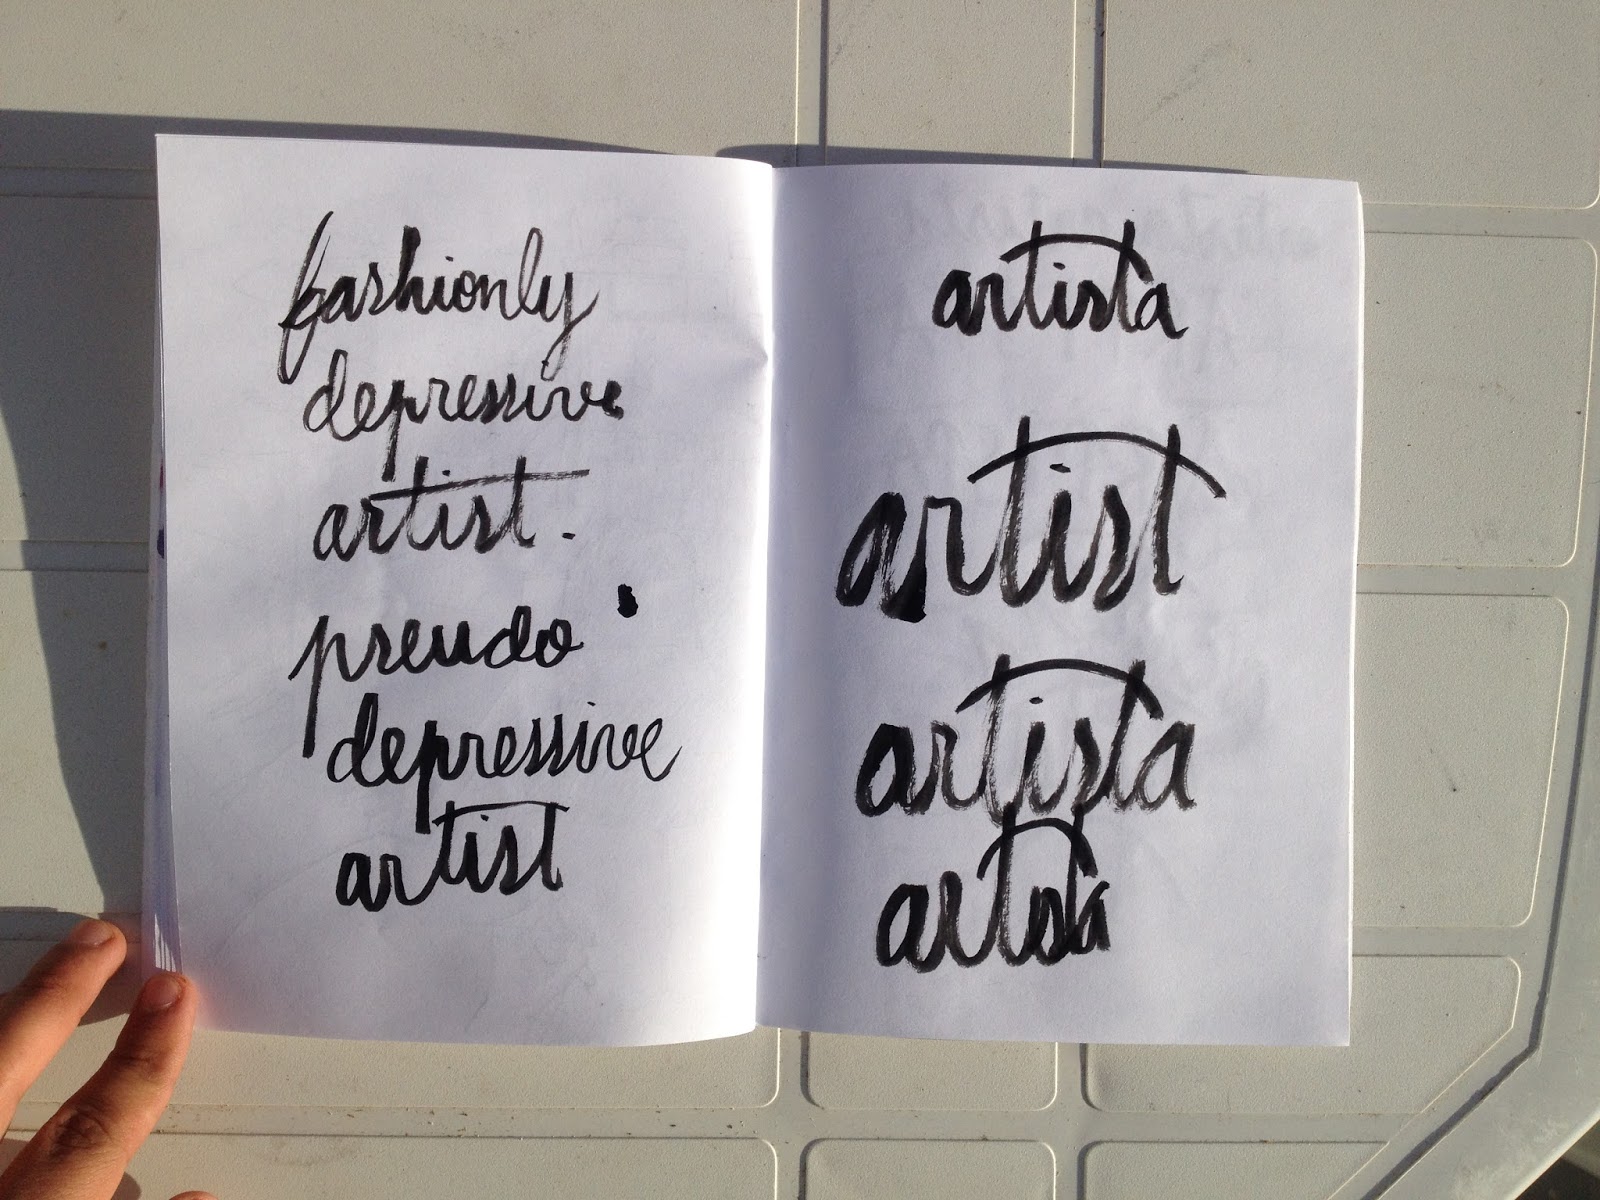 fashionly
depressive
artist.
pseudo
depressive
artist
artista
artist
artista
artista